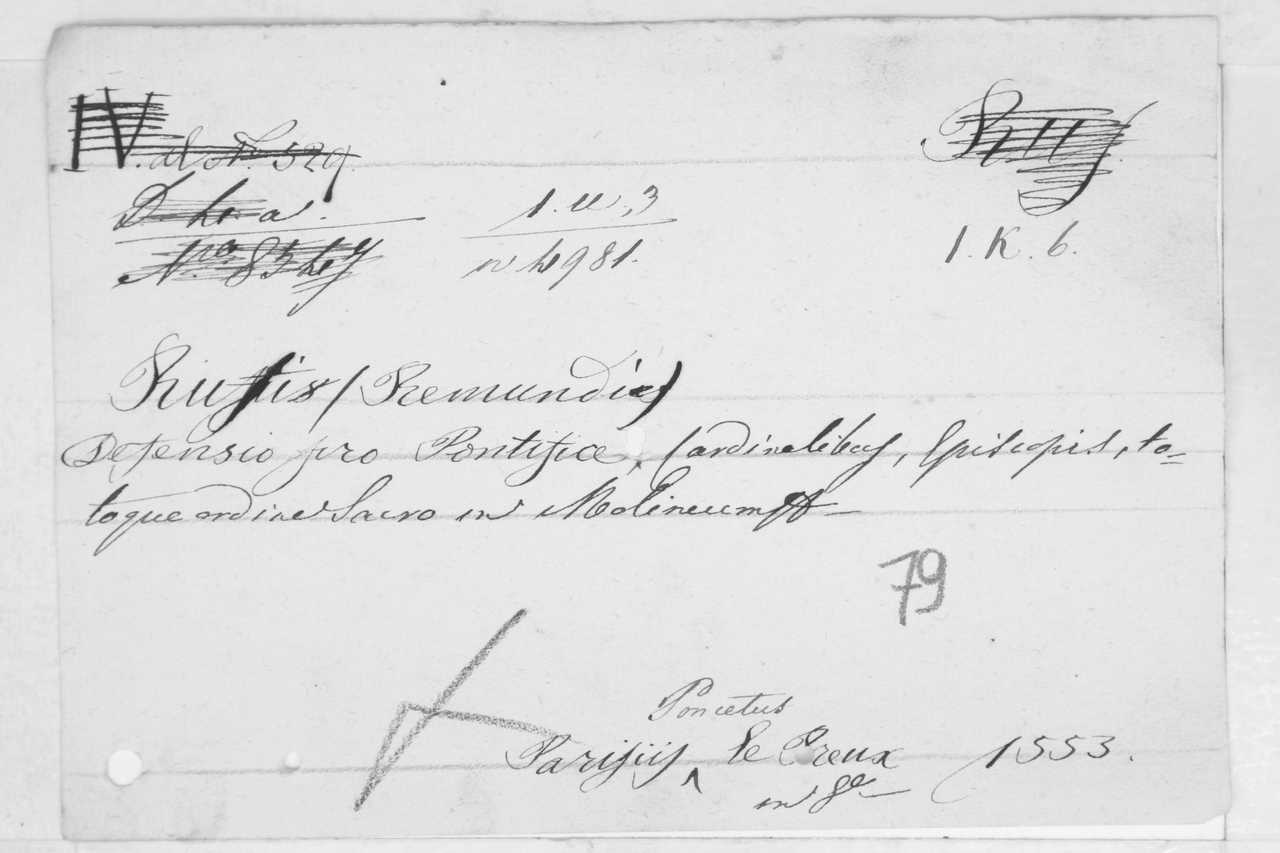 IV.
1. u. 3
N 4981.
1. K. 6.
Rufus (Remundus)
Defensio pro Pontifice, Cardinalibus, Episcopis, to-
toque ordine Sacro in Molineum
79
Poncetus
Parisiis ^ le Preux 1553.
in 8o